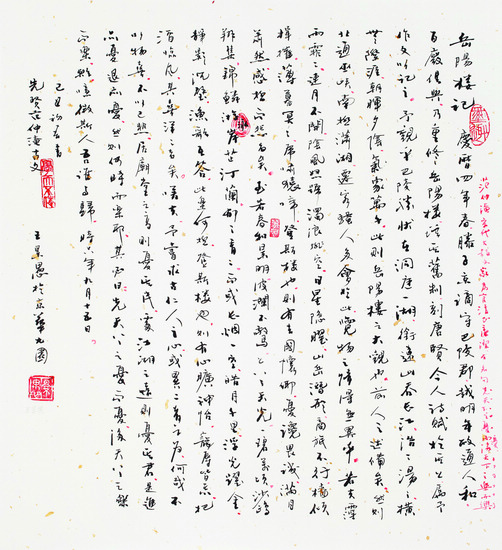 岳陽樓記 慶曆四年春滕子京謫守巴陵郡越明年政通人和
百廢俱興乃重修岳陽樓增其舊制刻唐賢今人詩賦於其上屬予
作文以記之予觀夫巴陵勝狀在洞庭一湖銜遠山吞長江浩浩湯湯橫
無際涯朝暉夕陰氣象萬千此則岳陽樓之大觀也前人之述備矣然則
北通巫峽南極瀟湘遷客騷人多會於此覽物之情得無異乎若夫霪
雨霏霏連月不開陰風怒號濁浪排空日星隱曜山岳潛形商旅不行檣傾
楫摧薄暮冥冥虎嘯猿啼登斯樓也則有去國懷鄉憂讒畏譏滿目
蕭然感極而悲者矣至若春和景明波瀾不驚上下天光一碧萬頃沙鷗
翔集錦鱗游泳岸芷汀蘭郁郁青青而或長煙一空皓月千里浮光躍金
靜影沉璧漁歌互答此樂何極登斯樓也則有心曠神怡寵辱皆忘把
酒臨風其喜洋洋者矣嗟夫予嘗求古仁人之心或異二者之為何哉不
以物喜不以己悲居廟堂之高則憂其民處江湖之遠則憂其君是進
亦憂退亦憂然則何時而樂耶其必曰先天下之憂而憂後天下之樂
而樂歟噫微斯人吾誰與歸 時六年九月十五日
己丑初春書
先賢范仲淹古文